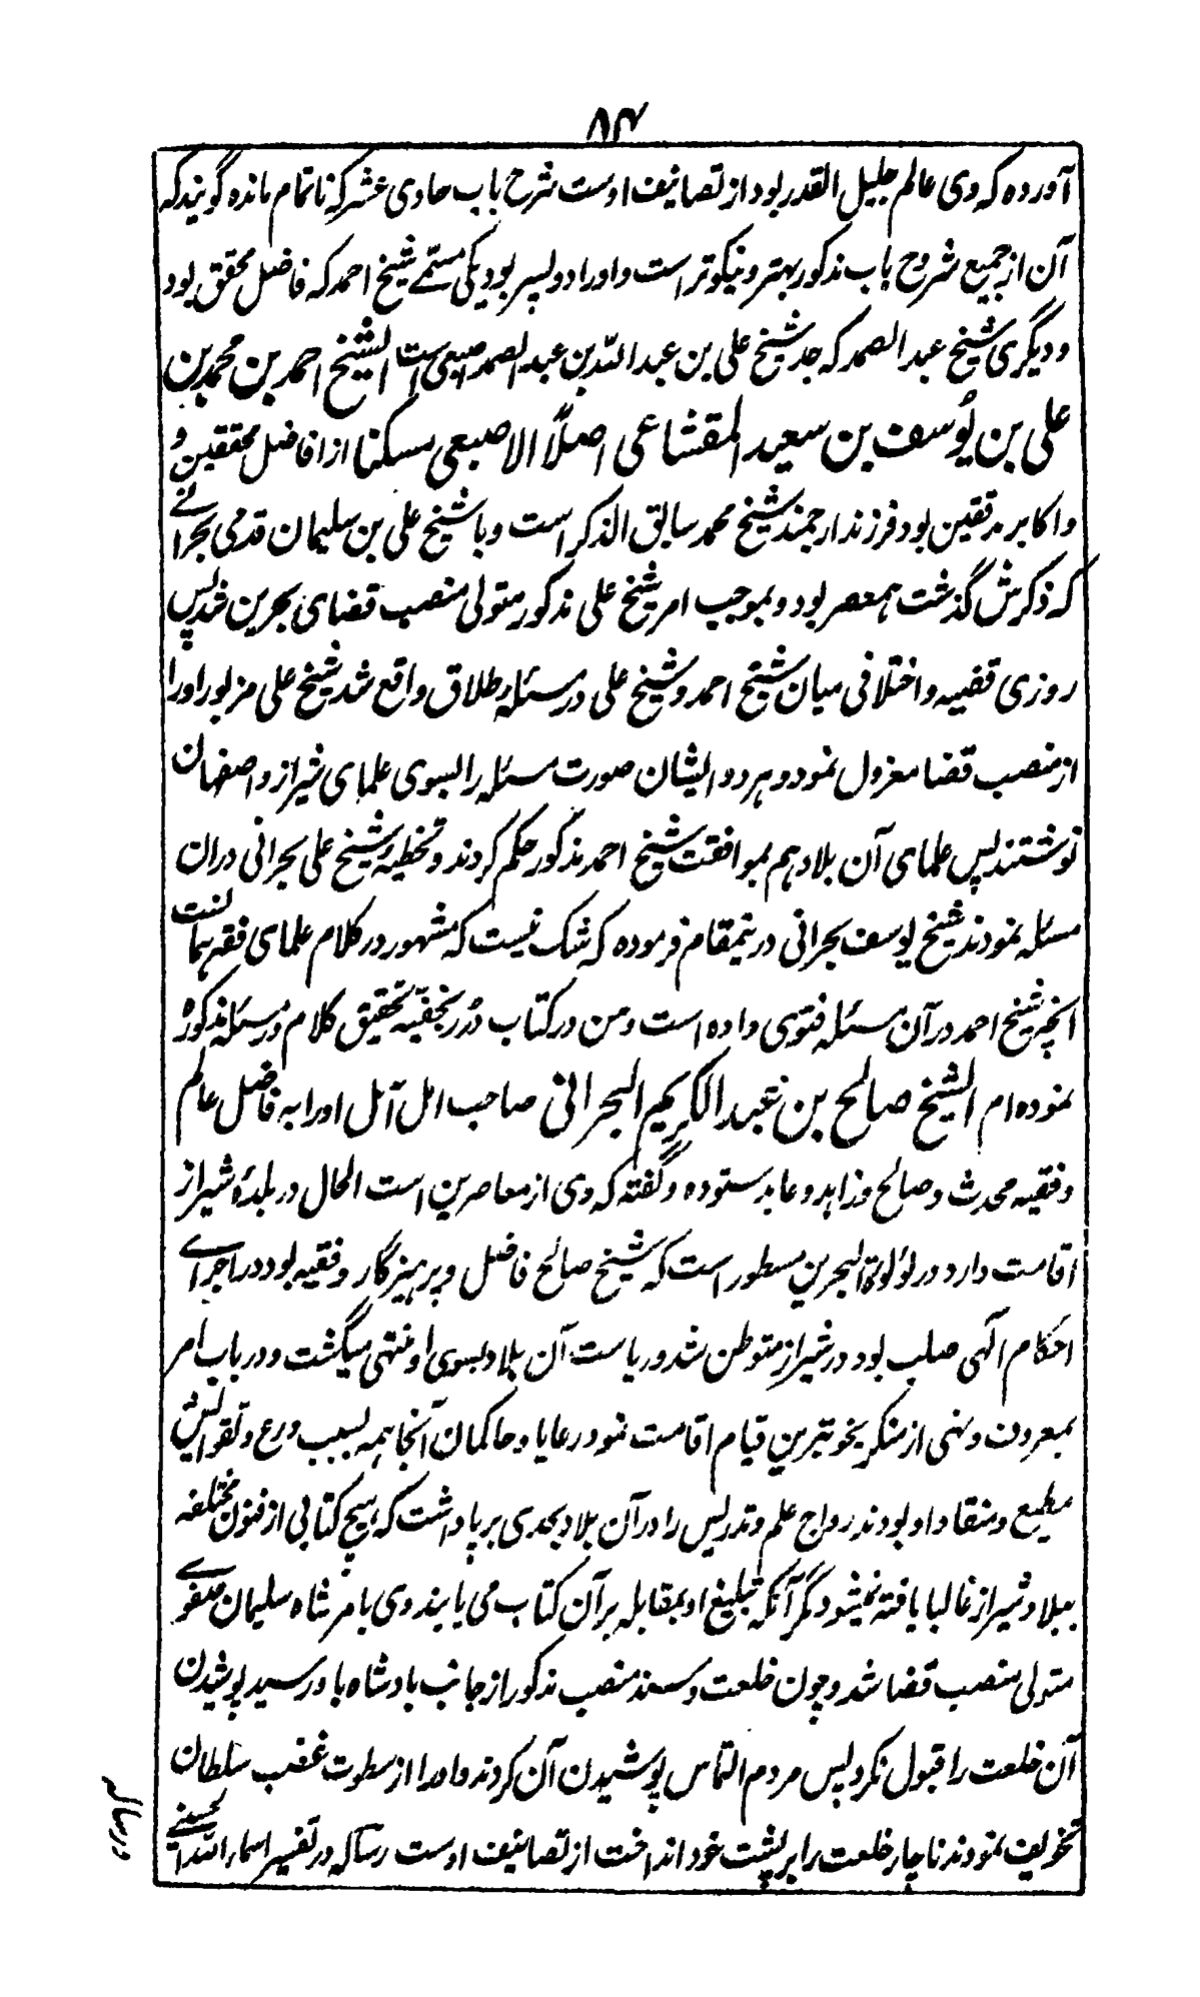 ۸۴
آورده که وی عالم جلیل القدر بود از تصانیف اوست شرح باب حادی عشر که ناتمام مانده گویند که
آن از جمیع شروح باب مذکور بهتر و نیکوتر است و او را دو پسر بود یکی مسمے شیخ احمد که فاضل محقق بود
و دیگری شیخ عبد الصمد که جد شیخ علی بن عبد اللّه بن عبد الصمد اصبعی است الشیخ احمد بن محمد بن
علی بن یُوسف بن سعید المقشاعی اصلًا الاصبعی مسکنا از افاضل محققین و
واکابر مدققین بود فرزند ارجمند شیخ محمد سابق الذکر است و با شیخ علی بن سلیمان قدمی بحرانے
که ذکرش گذشت همعصر بود و بموجب امر شیخ علی مذکور متولی منصب قضای بحرین شد پس
روزی قضیه و اختلافی میان شیخ احمد و شیخ علی در مسئله طلاق واقع شد شیخ علی مزبور او را
از منصب قضا معزول نمود و هر دو ایشان صورت مسئله را بسوی علمای شیراز و اصفهان
نوشتند پس علمای آن بلاد هم بموافقت شیخ احمد مذکور حکم کردند و تخطیه شیخ علی بحرانی دران
مسئله نمودند شیخ یوسف بحرانی درینمقام فرموده که شک نیست که مشهور در کلام علمای فقه همانست
انچه شیخ احمد در آن مسئله فتوی داده است و من در کتاب دُرر نجفیّه تحقیق کلام در مسئله مذکوره
نموده ام الشیخ صالح بن عبد الکریم البحرانی صاحب امل آمل او را به فاضل عالم
و فقیه محدث و صالح و زاهد و عابد ستوده و گفته که وی از معاصرین است الحال در بلدهٔ شیراز
اقامت دارد در لؤلؤة البحرین مسطور است که شیخ صالح فاضل و پرهیزگار و فقیه بود در اجراے
احکام آلهی صلب بود در شیراز متوطن شد و ریاست آن بلاد بسوی او منتهی میگشت و در باب امر
بمعروف و نهی از منکر بخوبترین قیام اقامت نمود رعایا و حاکمان آنجا همه بسبب ورع و تقوایش
مطیع و منقاد او بودند رواج علم و تدریس را در آن بلاد بحدی برپا داشت که هیچ کتابی از فنون مختلفه
ببلاد شیراز غالبا یافته نمیشود مگر آنکه تبلیغ او بمقابله بر آن کتاب می یابند وی بامر شاه سلیمان صفوے
متولی منصب قضا شد و چون خلعت و سند منصب مذکور از جانب بادشاه باو رسید پوشیدن
آن خلعت را قبول نکرد پس مردم التماس پوشیدن آن کردند و او را از سطوت غضب سلطان
تخویف نمودند ناچار خلعت را بر پشت خود انداخت از تصانیف اوست رساله در تفسیر اسماء اللّه الحسنے
و رساله